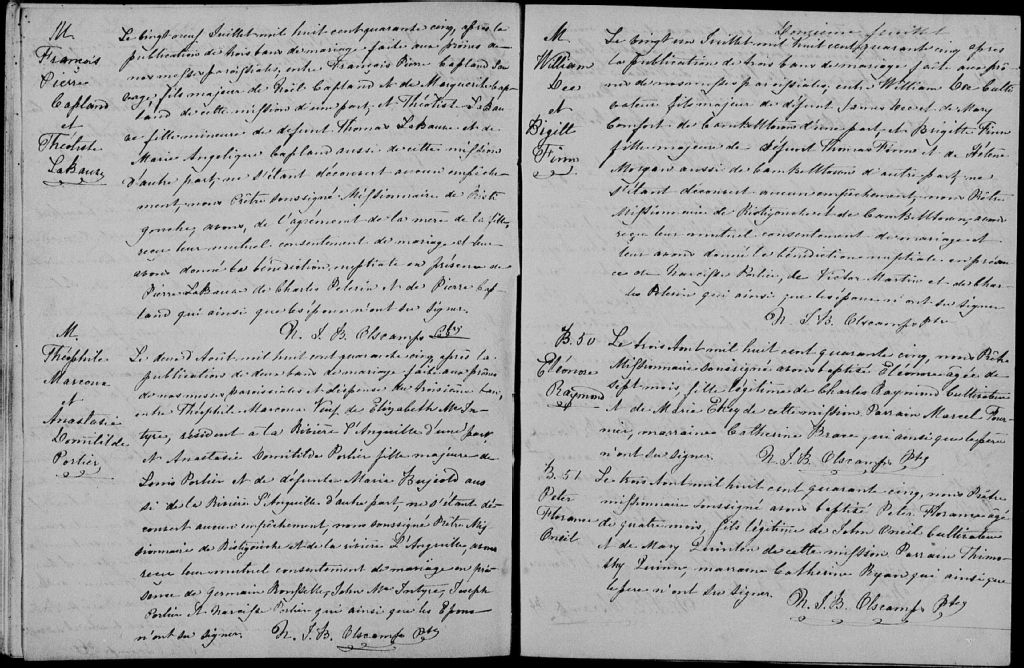 M.
François
Pierre
Capland
et
Théotiste
LaBauve
Le vingt neuf Juillet mil huit cent quarante cinq, après la
publication de trois bans de mariage faite aux prônes de
nos messes paroissiales, entre François Pierre Capland Sau
vage, fils majeur de Noël Capland et de Marguerite Cap
land de cette mission d'une part, et Théotiste LaBau
ve fille mineure de défunt Thomas LaBauve et de
Marie Angelique Capland aussi de cette mission
d'autre part, ne s'étant découvert aucun empêche-
ment, nous Prêtre soussigné Missionnaire de Risti
gouche, avons, de l'agrément de la mère de la fille,
reçu leur mutuel consentement de mariage et leur
avons donné la bénédiction nuptiale en présence de
Pierre LaBauve de Charles Pelerin et de Pierre Cap-
land qui ainsi que les époux n'ont su signer.
N. I. B. Olscamps Ptre
M.
Théophile
Marcoux
et
Anastasie
Domitilde
Portier
Le deux d'Août, mil huit cent quarante cinq, après la
publication de deux bans de mariage faite aux prônes
de nos messes paroissiales et dispense du troisième ban,
entre Théophile Marcoux Veuf de Elizabeth McIn-
tyre, résident à la Rivière l'Anguille d'une part
et Anastasie Domitilde Portier fille majeure de
Louis Portier et de défunte Marie Bujold aus
si de la Rivière l'Anguille d'autre part, ne s'étant dé-
couvert aucun empêchement, nous soussigné Prêtre Mis
sionnaire de Ristigouche et de la rivière L'Anguille, avons
reçu leur mutuel consentement de mariage en pré
sence de Germain John McIntyre, Joseph
Portier et Narcisse Portier qui ainsi que les Epoux
n'ont su signer. N. I. B. Olscamps Ptre
M.
William
Lee
et
Brigitt
Finn
Onzième feuillet
Le vingt un Juillet mil huit cent quarante cinq après
la publication de trois bans de mariage faite aux prô-
nes de nos messes paroissiales, entre William Lee Culti
vateur fils majeur de défunt James Lee et de Mary
Comfort de Cambelltown d'une part, et Brigitte Finn
fille majeure de Défunt Thomas Finn et de Hélène
Morgan aussi de Cambelltown d'autre part, ne
s'étant découvert aucun empêchement, nous Prêtre
Missionnaire de Ristigouche et de Cambelltown, avons
reçu leur mutuel consentement de mariage et
leur avons donné la bénédiction nuptiale en présen
ce de Narcisse Portier, de Victor Martin et de Char-
les Pelerin qui ainsi que les époux n'ont su signer
N. I. B. Olscamps Ptre
B. 50
Eléonore
Raymond
Le trois Août mil huit cent quarante cinq, nous Prêtre
Missionnaire soussigné avons baptisé Eléonore agée de
sept mois, fille légitime de Charles Raymond Cultivateur
et de Marie de cette mission Parrain Marcel Four-
nier, marraine Catherine qui ainsi que le père
n'ont su signer. N. I. B. Olscamps Ptre
B. 51
Peter
Florance
Oneil
Le trois Août mil huit cent quarante cinq, nous Prêtre
missionnaire soussigné avons baptisé Peter Florance agé
de quatre mois, fils légitime de John Oneil Cultivateur
et de Mary Quinlen de cette mission Parrain Thimo
thy Quinn, marraine Catherine Ryan qui ainsi que
le père n'ont su signer. N. I. B. Olscamps Ptre